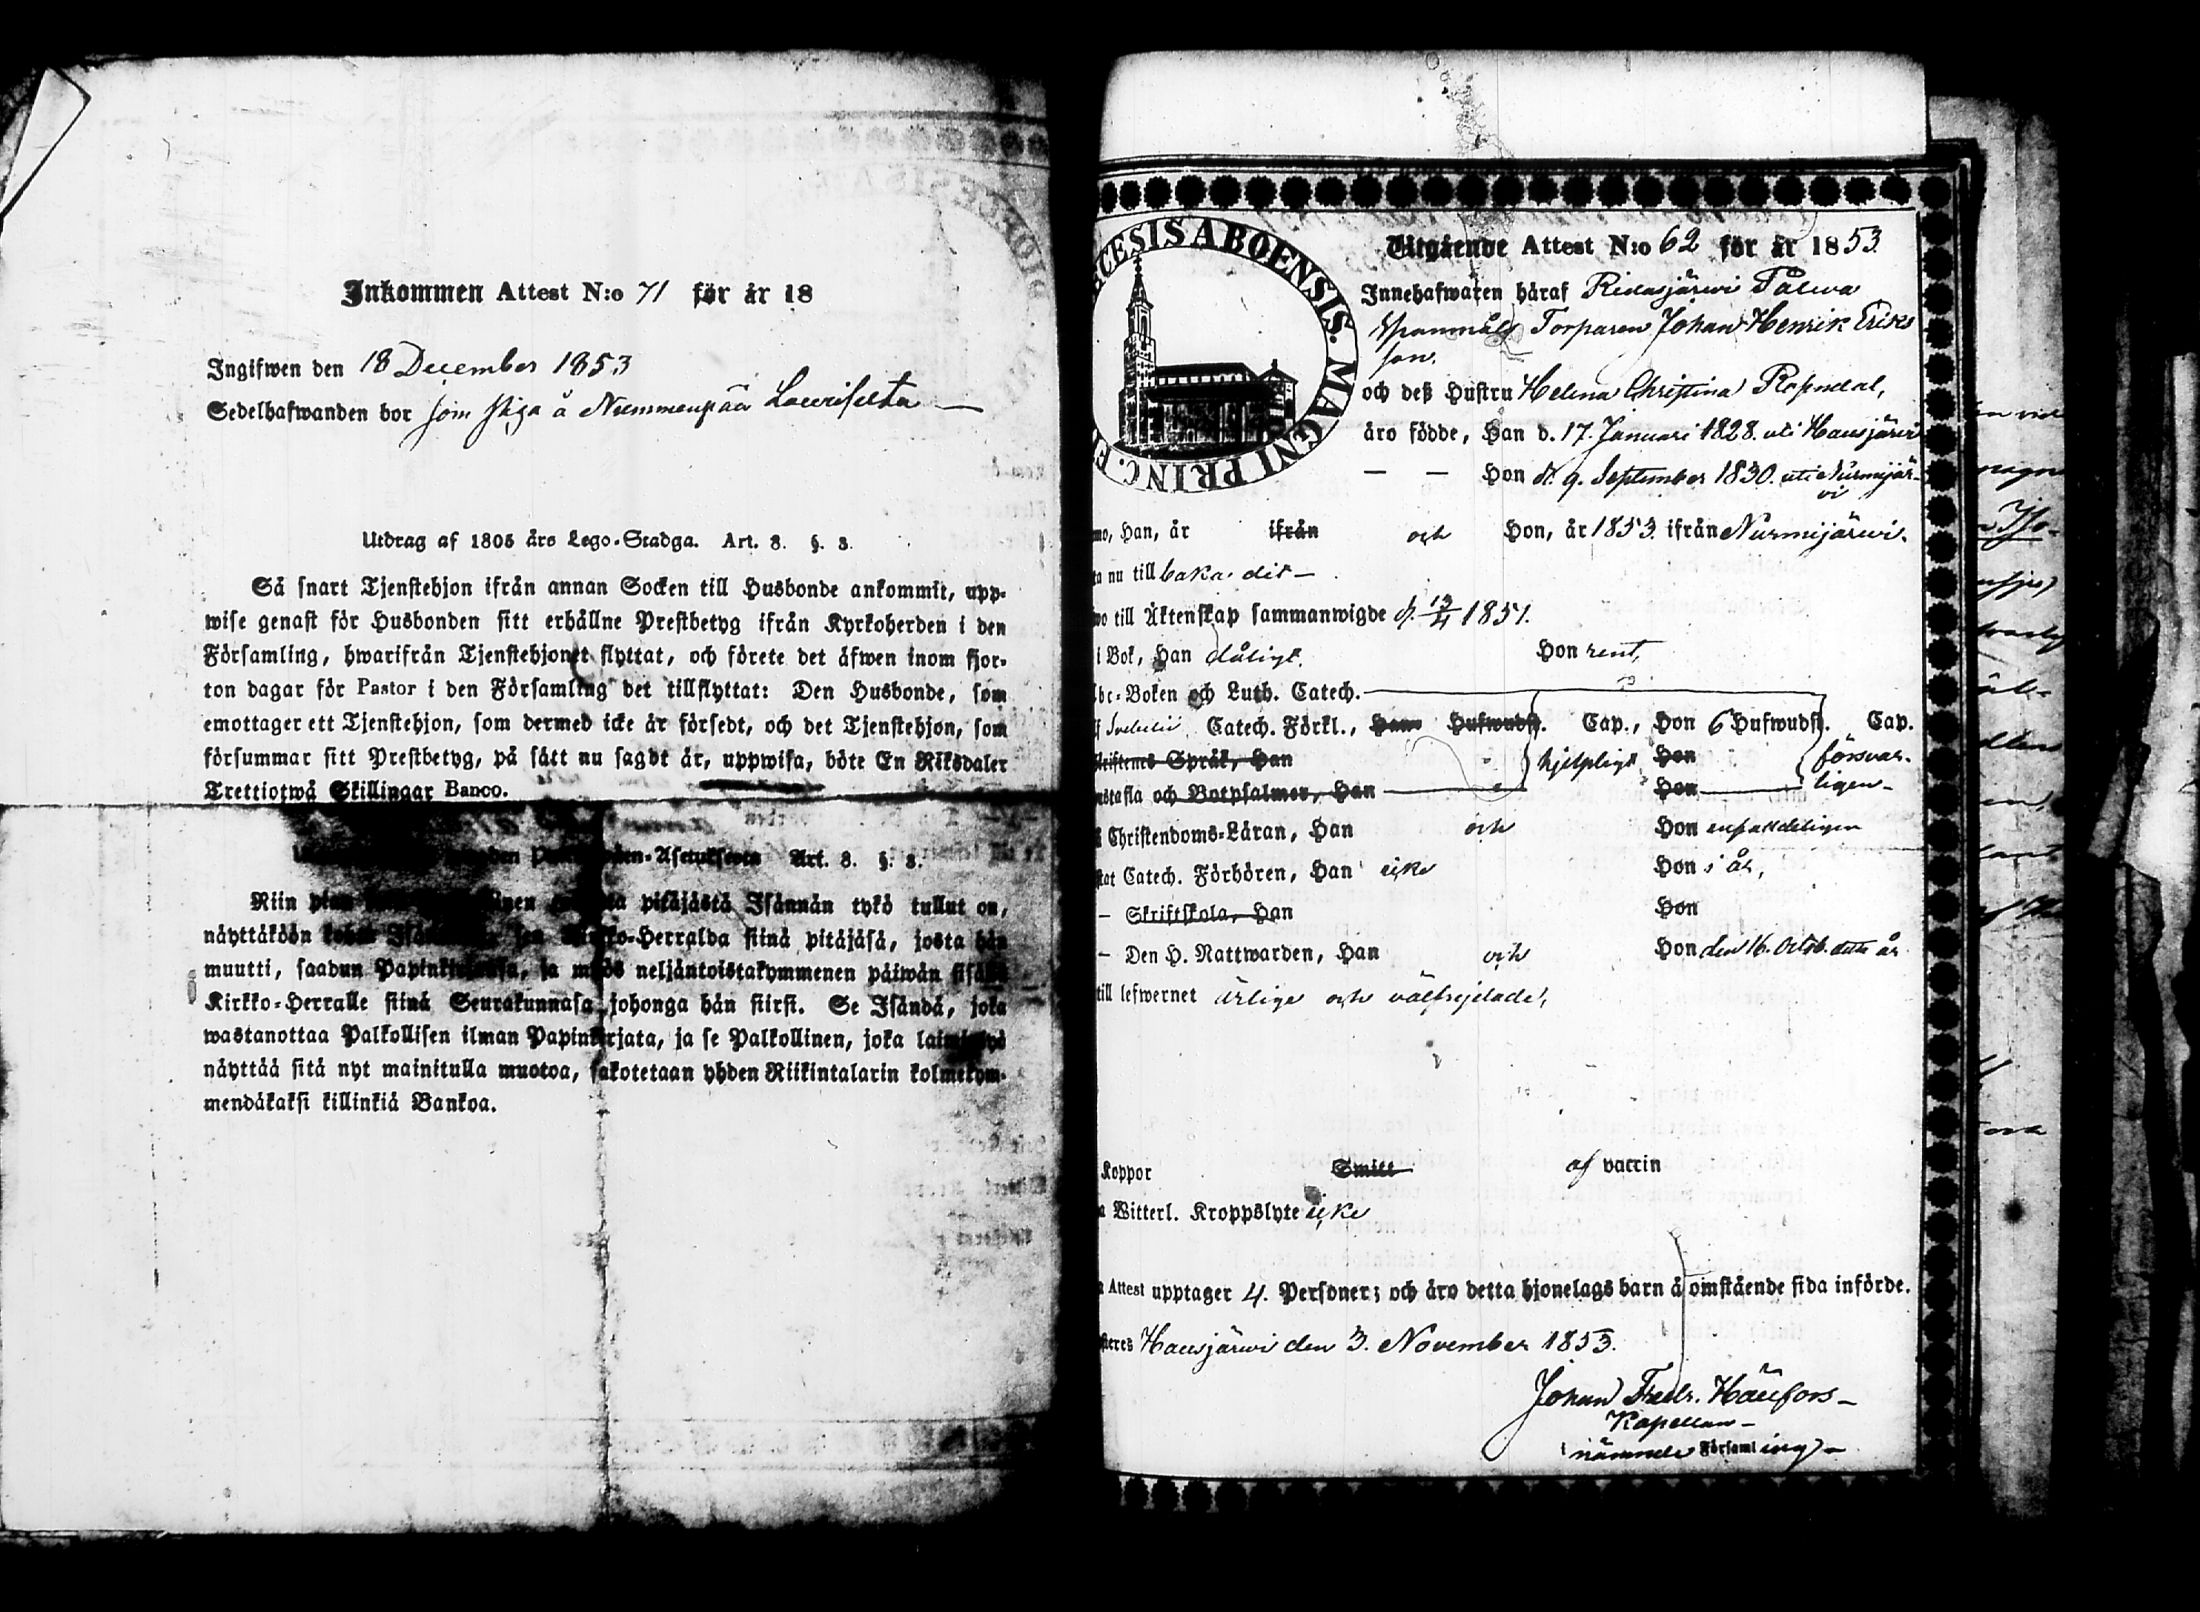 Inkommen Attest N:o 71 för år 18
Ingifwen den 18 December 1853
Sedelhafwanden bor som piga å Nummenpää Laurisilta
Utdrag af 1805 års Lego-Stadga. Art. 8. §. 3.
Så snart Tjenstehjon ifrån annan Socken till Husbonde ankommit, upp-
wise genast för Husbonden sitt erhållne Prestbetyg ifrån Kyrkoherden i den
Församling, hwarifrån Tjenstehjonet flyttat, och förete det äfwen inom fjor-
ton dagar för Pastor i den Församling det tillflyttat: Den Husbonde, som
emottager ett Tjenstehjon, som dermed icke är försedt, och det Tjenstehjon, som
försummar sitt Prestbetyg, på sätt nu sagdt är, uppwisa, böte En Riksdaler
Trettiotwå Skillingar Banco.
-Asetuksesta Art. 8. §. 3.
Niin pian pitäjästä Isännän tykö tullut on,
näyttäköön Kirkko-Herralda siinä pitäjäsä, josta hän
muutti, saadun Papinkirjansa, ja myös neljäntoistakymmenen päiwän sisällä
Kirkko-Herralle siinä Seurakunnasa johonga hän siirsi. Se Isändä, joka
wastanottaa Palkollisen ilman Papinkirjata, ja se Palkollinen, joka laiminlyö
näyttää sitä nyt mainitulla muotoa, sakotetaan yhden Riikintalarin kolmekym-
mendäkaksi killinkiä Bankoa.
CESIS ABOENSIS. MAGNI PRINC. F
Utgående Attest N:o 62 för år 1853.
Innehafwaren häraf Ridasjärwi Palwa
Torparen Johan Henrik Eriks
son.
och deß Hustru Helena Christina Rosendal,
äro födde, Han d. 17. Januari 1828. uti Hausjärwi
— — Hon d. 9. September 1830. uti Nurmijär-
wi
mo, Han, år ifrån och Hon, år 1853. ifrån Nurmijärwi.
ta nu till baka dit —
wo till Äktenskap sammanwigde d. 13/4 1851.
i Bok, Han dåligt. Hon rent,
bc-Boken och Luth. Catech.
Catech. Förkl., Han Hufwudst. Cap., Hon 6 Hufwudst. Cap.
Skriftenes Språk, Han hjelpligt Hon försvar-
ustafla och Botpsalmer, Han Hon ligen-
Christendoms-Läran, Han och Hon enfaldeligen
stat Catech. Förhören, Han icke Hon i år,
— Skriftskola, Han Hon
— Den H. Nattwarden, Han och Hon den 16. Octob. detta år
till lefwernet ärlige och välfrejdade,
Koppor Smitt af vaccin
a Witterl. Kroppslyte icke
Attest upptager 4. Personer; och äro detta hjonelags barn å omstående sida införde.
steres Hausjärwi den 3. November 1853.
Johan Fredr. Hällfors —
Kapellan —
i nämnde Församling —